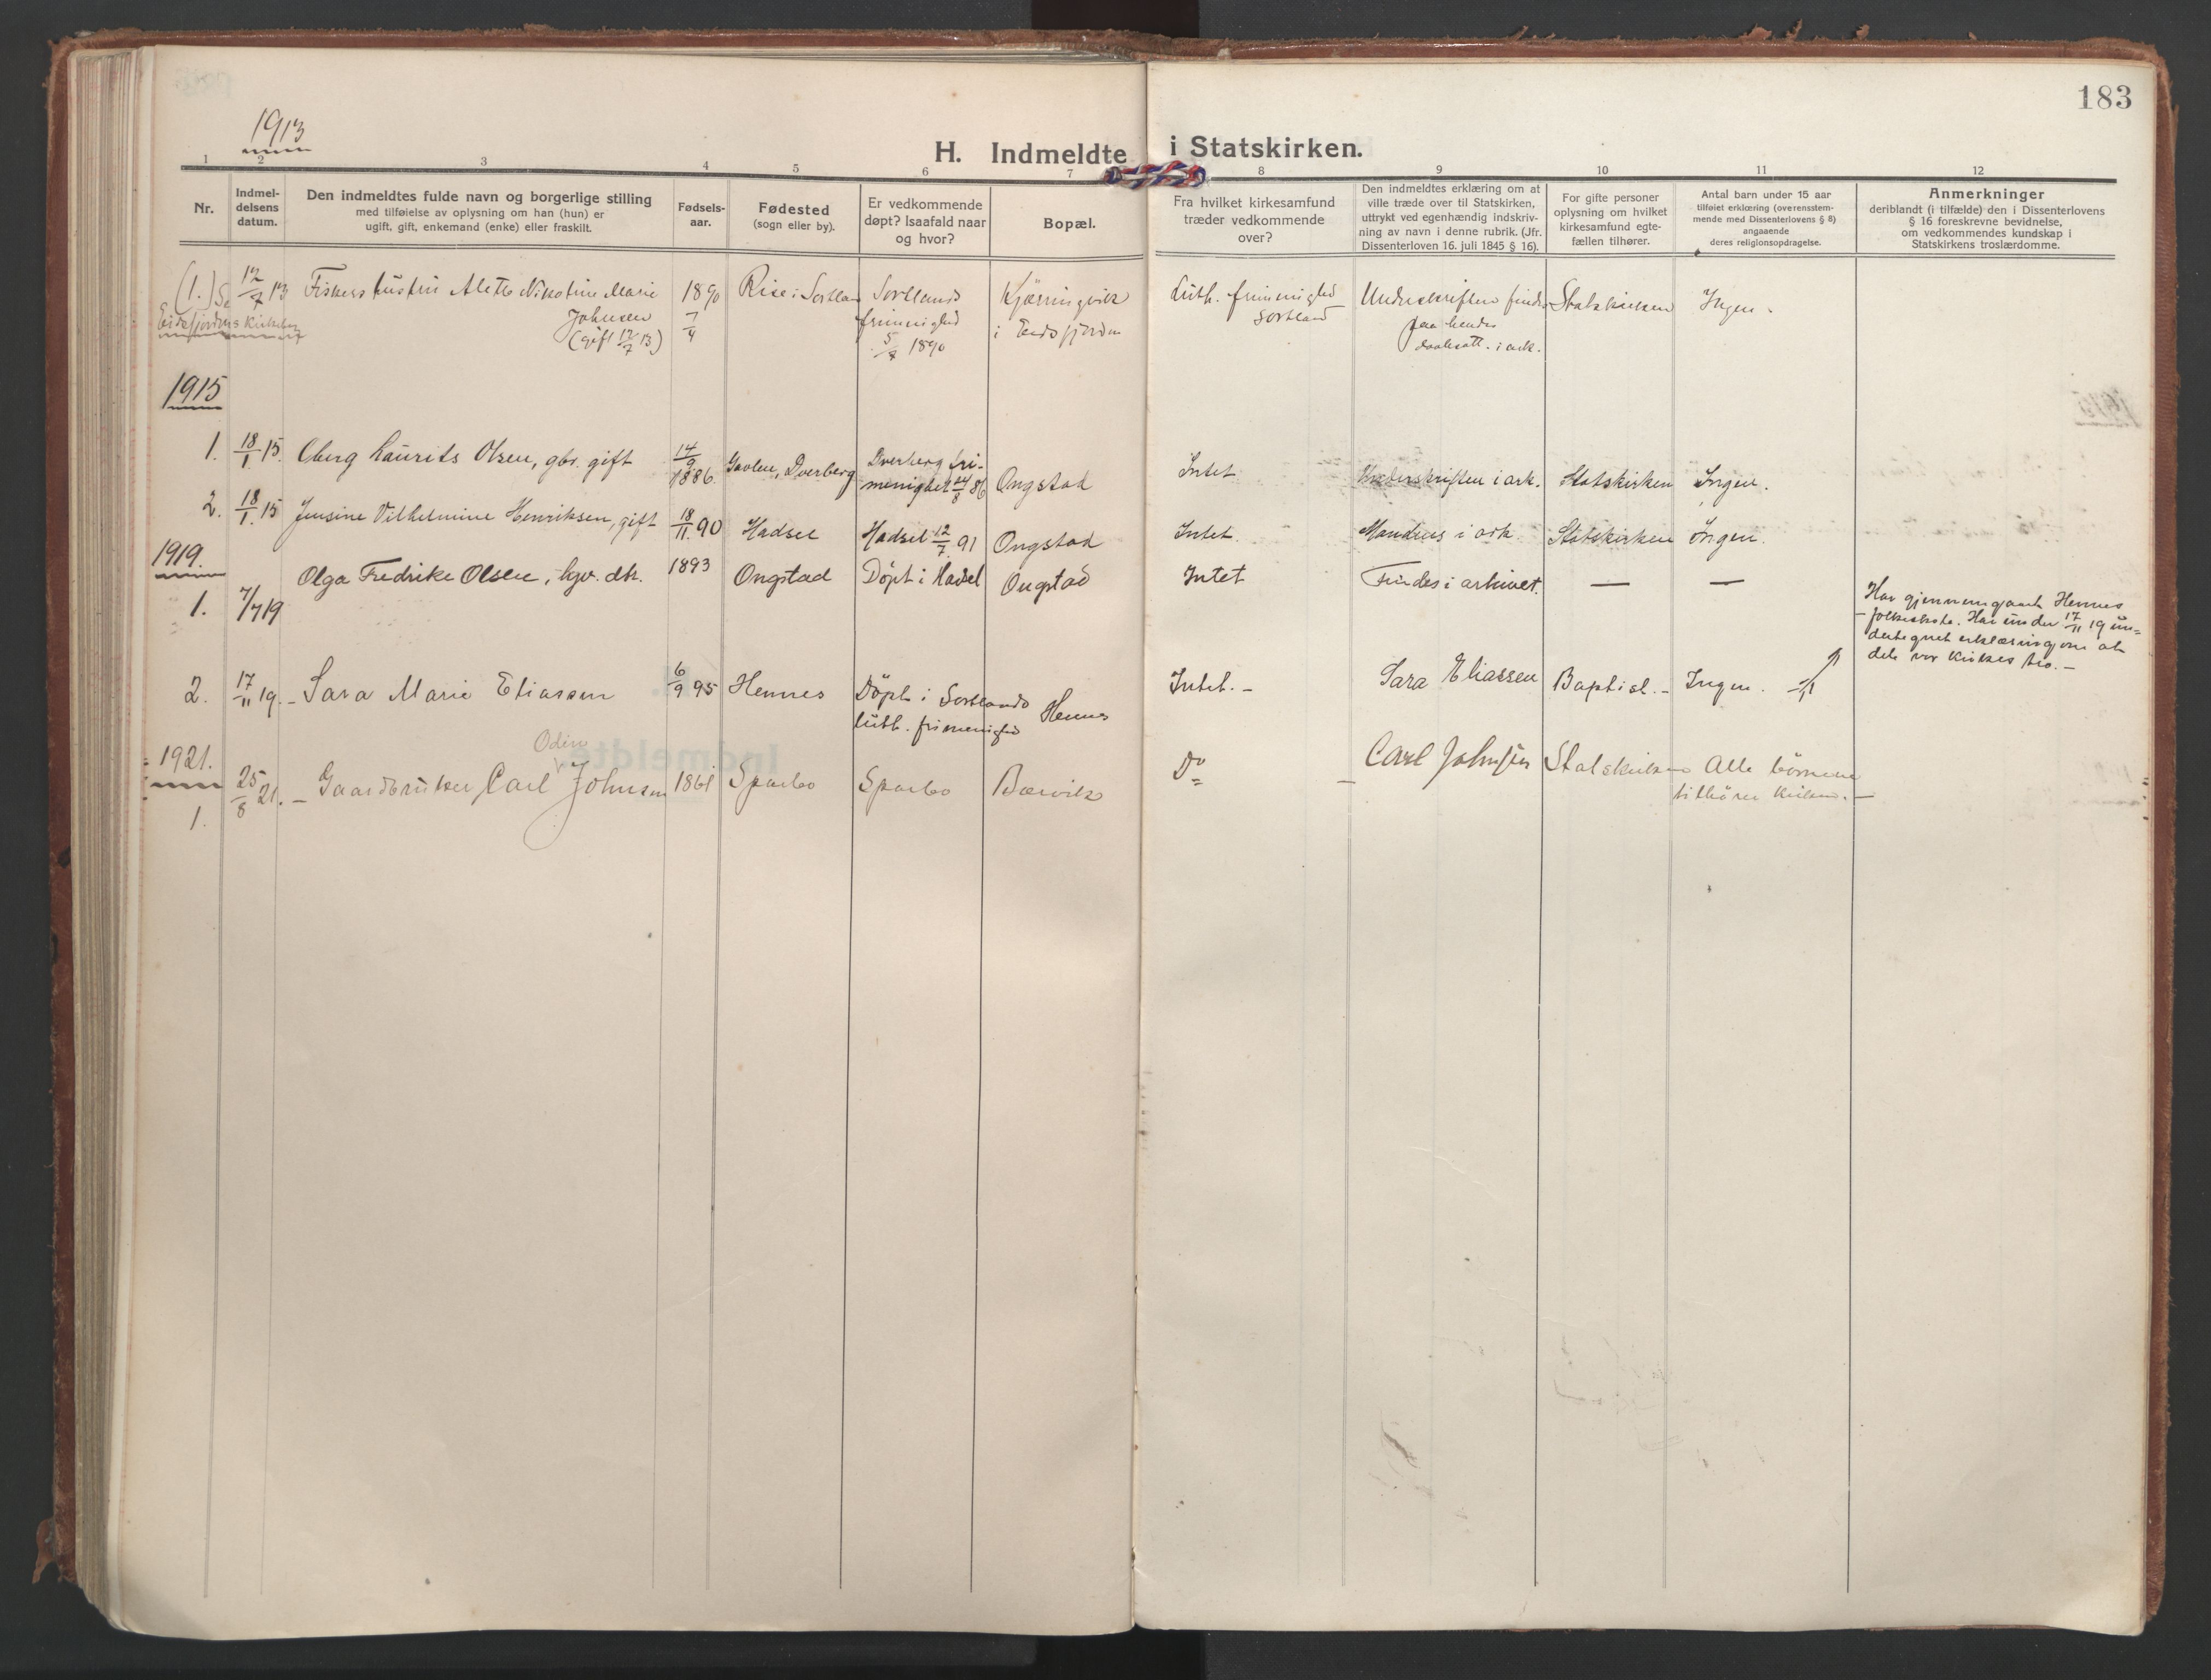 183
1913
H. Indmeldte i Statskirken.
1 2 3 4 5 6 7 8 9 10 11 12
Nr.
Indmel-
delsens
datum.
Den indmeldtes fulde navn og borgerlige stilling
med tilføielse av oplysning om han (hun) er
ugift, gift, enkemand (enke) eller fraskilt.
Fødsels-
aar.
Fødested
(sogn eller by).
Er vedkommende
døpt? Isaafald naar
og hvor?
Bopæl.
Fra hvilket kirkesamfund
træder vedkommende
over?
Den indmeldtes erklæring om at
ville træde over til Statskirken,
uttrykt ved egenhændig indskriv-
ning av navn i denne rubrik. (Jfr.
Dissenterloven 16. juli 1845 § 16).
For gifte personer
oplysning om hvilket
kirkesamfund egte-
fællen tilhører.
Antal barn under 15 aar
tilføiet erklæring (overensstem-
mende med Dissenterlovens § 8)
angaaende
deres religionsopdragelse.
Anmerkninger
deriblandt (i tilfælde) den i Dissenterlovens
§ 16 foreskrevne bevidnelse,
om vedkommendes kundskap i
Statskirkens troslærdomme.
(1.) Se
Eidsfjordens
12/7 13
Fiskers hustru Alette Nikoline Marie
Johnsen
(gift 12/7 13)
1890
7/4
Rise i Sortland
Sortlands
frimenighed
5/7 1890
Kjørringvik
i Eidsfjorden
Luth. frimenighed
Sortland
Underskriften findes
paa hendes
daabsatt. i ark.
Statskirken
Ingen.
1915
1. 18/1 15. Oberg Laurits Olsen, gbr. gift
14/9
1886.
Gavlen, Dverberg
Dverberg fri-
menighet 24/8 86
Ongstad
Intet
Underskriften i ark.
Statskirken
Ingen.
2. 18/1. 15 Jensine Vilhelmine Henriksen, gift 18/11. 90 Hadsel Hadsel 12/7. 91 Ongstad Intet. Mandens i ark. Statskirken Ingen.
1919.
1. 7/7 19
Olga Fredrike Olsen, hgv. dtr. 1893 Ongstad Döpt i Hadsel Ongstad Intet Findes i arkivet. — —
Har gjennemgaaet Hennes
folkeskole. Har under 17/11 19 un=
dertegnet erklæring om at
dele vor kirkes tro. —
2. 17/11 19. - Sara Marie Eliassen 6/9 95 Hennes
Döpt i Sortlands
luth. frimenighed
Hennes
Intet. - Sara Eliassen Baptist. - Ingen.
1921.
Odin
1. 25/8 21. - Gaardbruker Carl Johnsen 1861 Sparbo Sparbo Bærvik Do Carl Johnsen Statskirken
Alle börnene
tilhører kirken. —